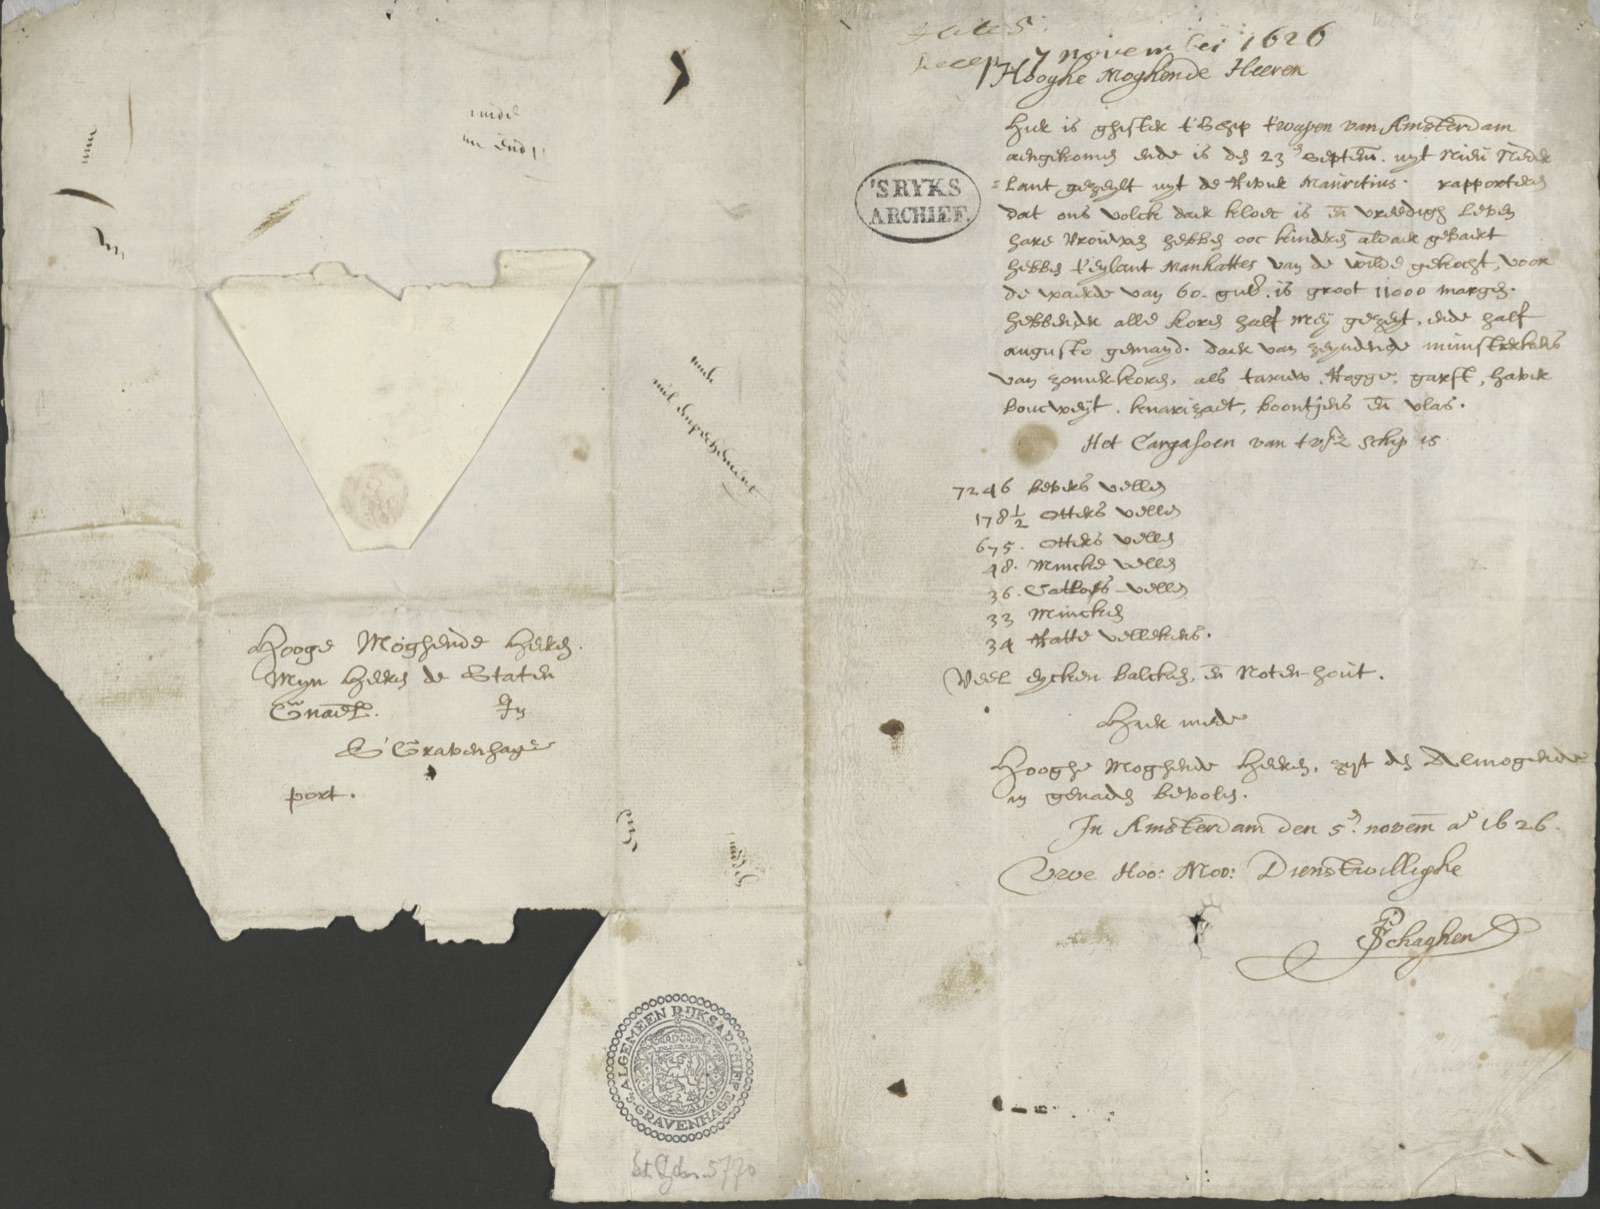 Recep 7 november 1626
Hooghe Moghende Heeren
Hier is ghister t'Schip t'wapen van Amsterdam
aengekomen ende is den 23en septem. uyt Nieu Neder
= Lant gezeylt uyt de Rivier Mauritius. rapporteren
dat ons volck daer kloec is en vreedigh leven
hare Vrouwen hebben ooc kinderen aldaer gebaert
hebben t'eylant Manhattes van de wilde gekocht, voor
de waerde van 60. guld. is groot 11000 margen.
hebbende alle koren half Mey gezeyt, ende half
augusto gemayd. daer van zeyndende munsterkens
van zomerkoren, als tarwe, Rogge, garst, haver
boucweyt, knarizaet, boontjens en vlas.
Het Cargasoen van tvsz schip is
7246 bevers vellen
178½ Otters vellen
675. Otters vellen
48. Mincke vellen
36. Catloes vellen
33 Mincken
34 Ratte vellekens.
Veel eycken balcken, en Noten-hout.
Hier mede
Hooghe Moghende Heeren, zyt den Almogende
in genaden bevolen.
In Amsterdam den 5en novem ao 1626.
Uwe Hoo: Moo: Dienstwillighe
PSchaghen
'S RYKS
ARCHIEF.
Hooge Moghende Heeren.
Myn Heeren de Staten
Gnael. In
S'Gravenhage
port.
mit empechement
ALGEMEEN RIJKSARCHIEF
'S-GRAVENHAGE
5770